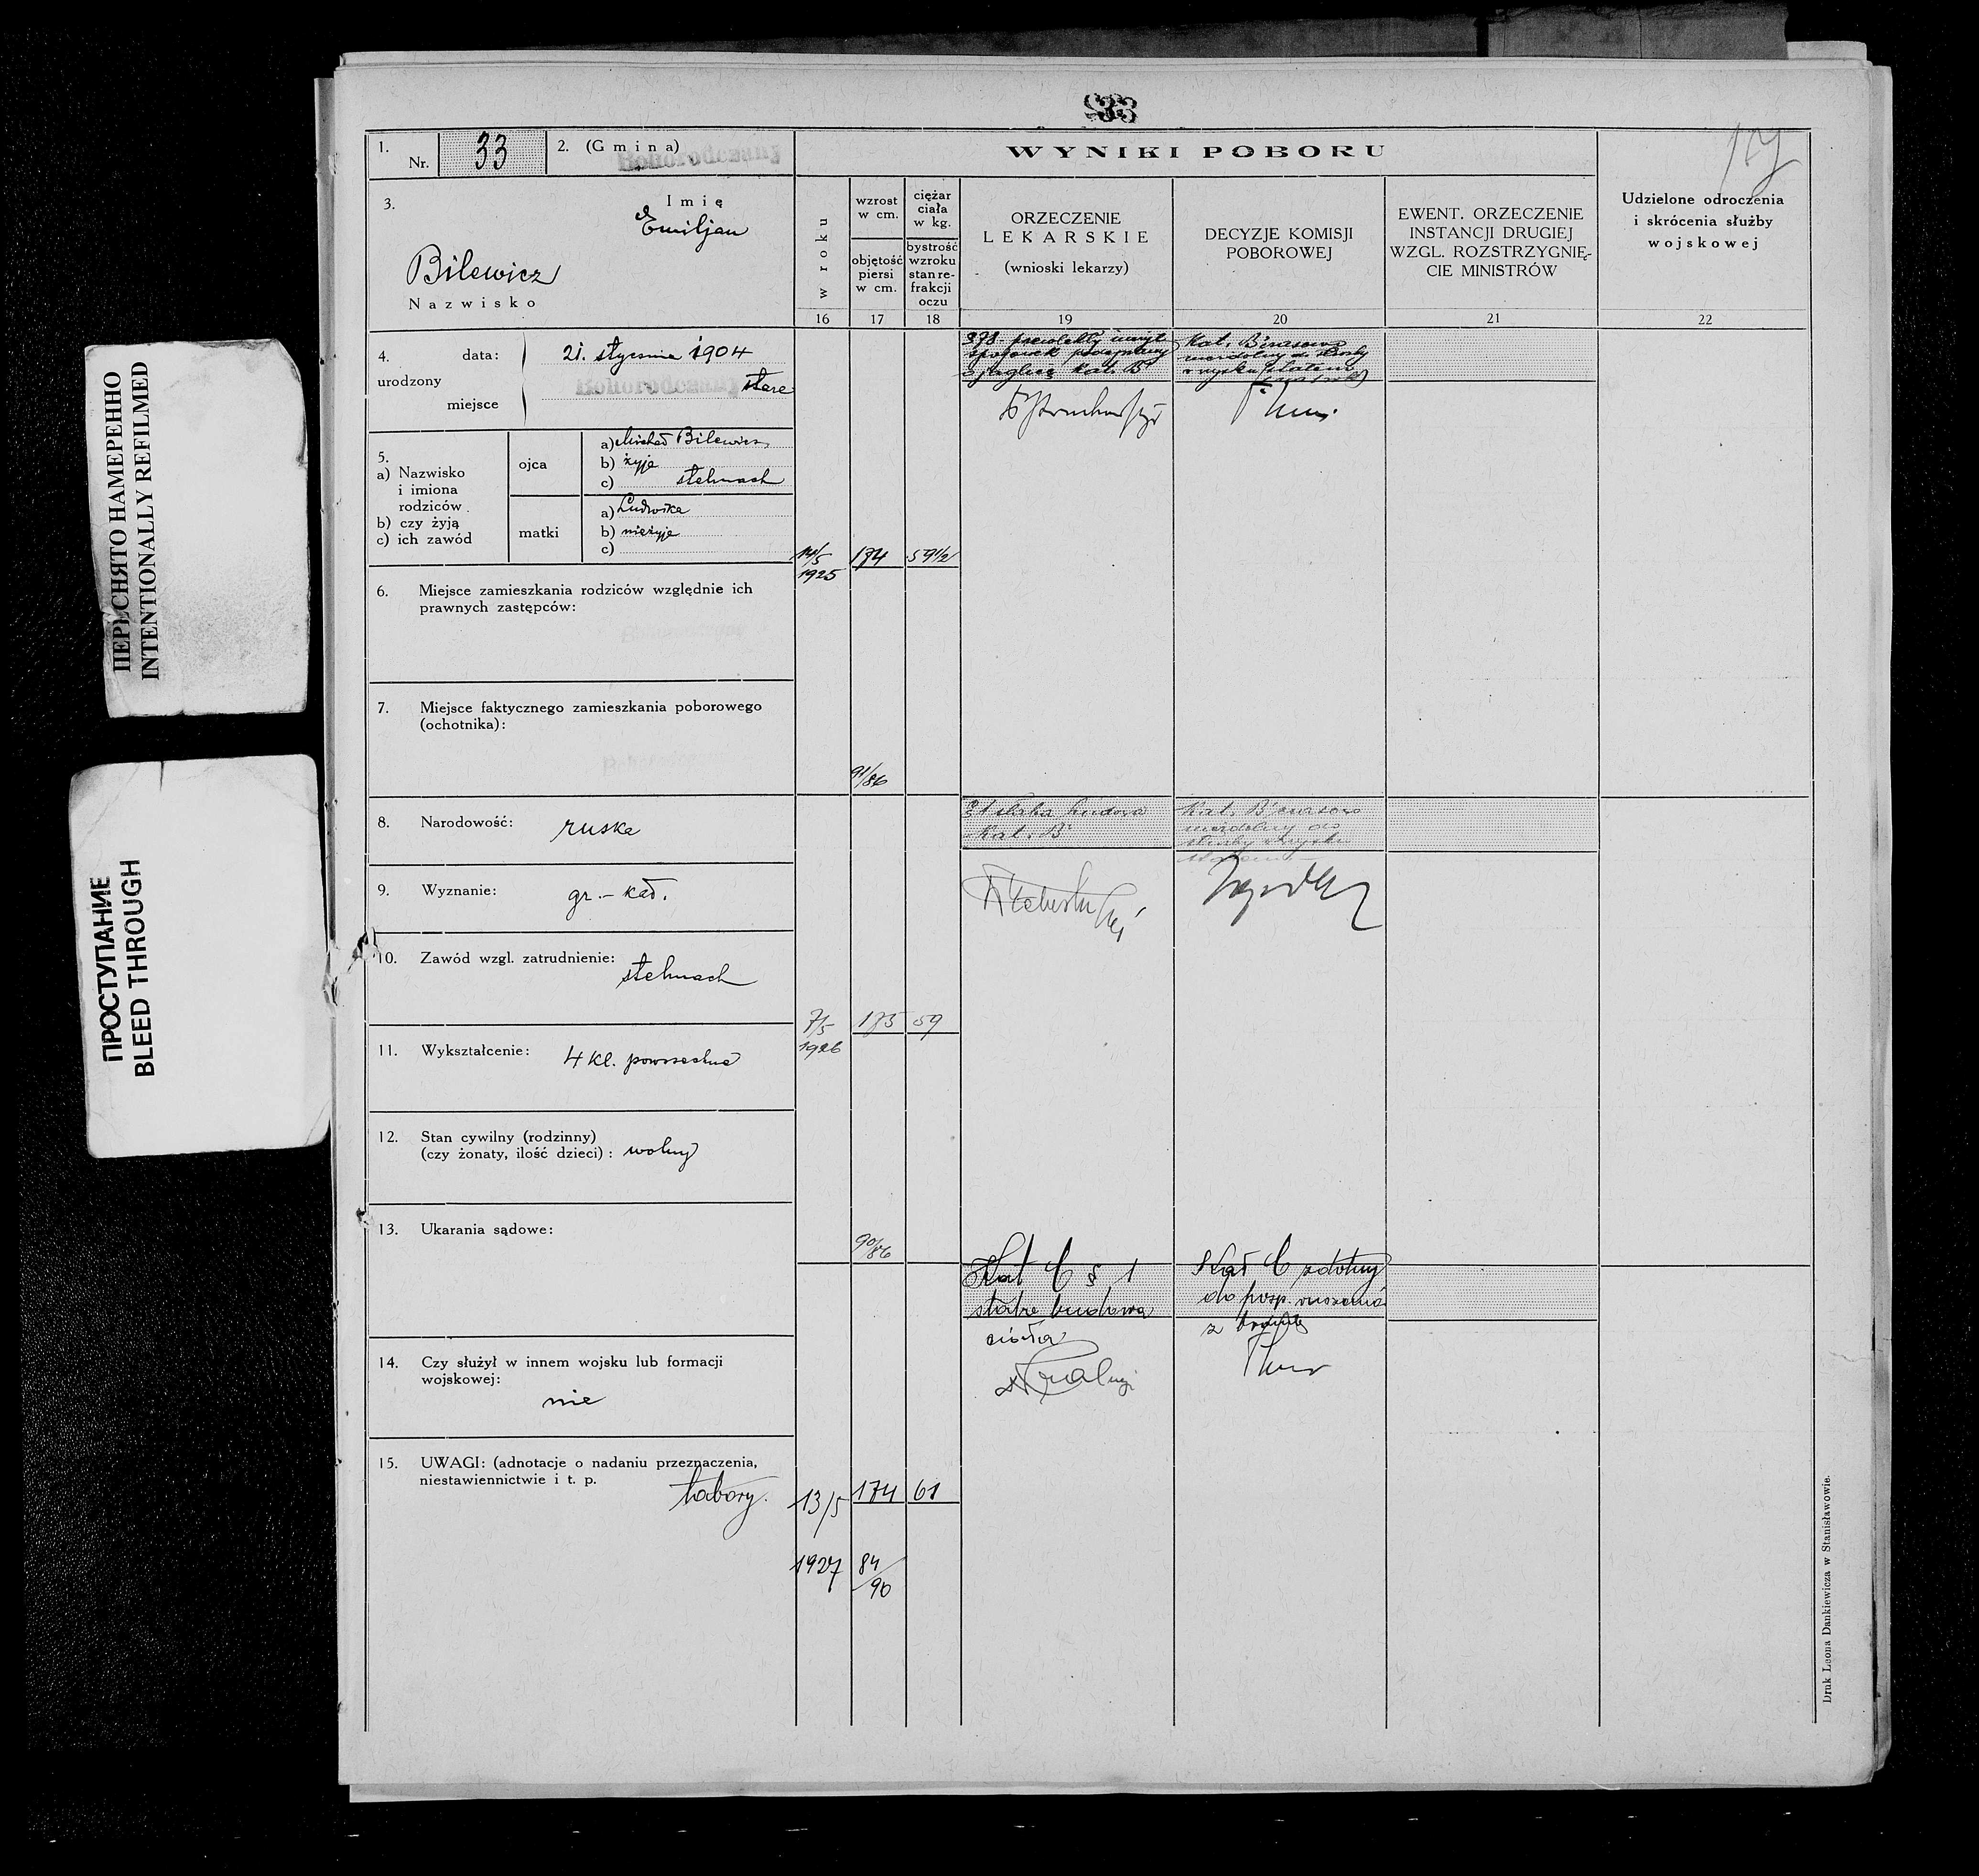 ПЕРЕСНЯТО НАМЕРЕННО
INTENTIONALLY REFILMED
ПРОСТУПАНИЕ
BLEED THROUGH
33
1. Nr. 33
2. (Gmina) Bohorodczany
3.
Imię
Emiljan
Bilewicz
Nazwisko
4. urodzony
data: 21. stycznia 1904
miejsce Bohorodczany stare
5.
a) Nazwisko
i imiona
rodziców
b) czy żyją
c) ich zawód
ojca
a) Michał Bilewicz
b) żyje
c) stelmach
matki
a) Ludwika
b) nieżyje
c)
6. Miejsce zamieszkania rodziców względnie ich
prawnych zastępców:
7. Miejsce faktycznego zamieszkania poborowego
(ochotnika):
8. Narodowość: ruska
9. Wyznanie: gr.-kat.
10. Zawód wzgl. zatrudnienie: stelmach
11. Wykształcenie: 4 kl. powszechne
12. Stan cywilny (rodzinny)
(czy żonaty, ilość dzieci): wolny
13. Ukarania sądowe:
14. Czy służył w innem wojsku lub formacji
wojskowej:
nie
15. UWAGI: (adnotacje o nadaniu przeznaczenia,
niestawiennictwie i t. p.
tabory.
WYNIKI POBORU
w roku
16
wzrost
w cm.
objętość
piersi
w cm.
17
ciężar
ciała
w kg.
bystrość
wzroku
stan re-
frakcji
oczu
18
ORZECZENIE
LEKARSKIE
(wnioski lekarzy)
19
DECYZJE KOMISJI
POBOROWEJ
20
EWENT. ORZECZENIE
INSTANCJI DRUGIEJ
WZGL. ROZSTRZYGNIĘ-
CIE MINISTRÓW
21
Udzielone odroczenia
i skrócenia służby
wojskowej
22
14/5
1925
174
59 1/2
91/86
jaglicą Kat. B
Kat. B czasowo
niezdolny do służby
w wojsku stałem
7/5
1926
175
59
90/86
§ 1 słaba budowa
Kat. B
Kat. B czasowo
niezdolny do
służby w wojsku
stałem
13/5
1927
174
61
84/90
Kat C § 1
słaba budowa
ciała
Kat C zdolny
do posp. ruszenia
z bronią
Druk Leona Dankiewicza w Stanisławowie.